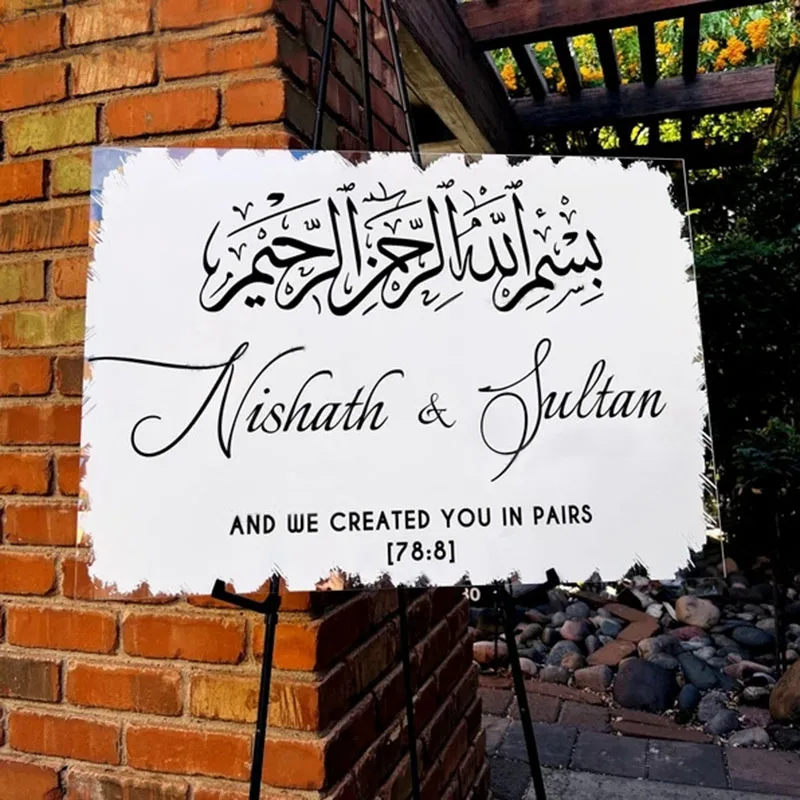 بِسْمِ اللَّهِ الرَّحْمَنِ الرَّحِيمِ
Nishath & Sultan
AND WE CREATED YOU IN PAIRS
[78:8]